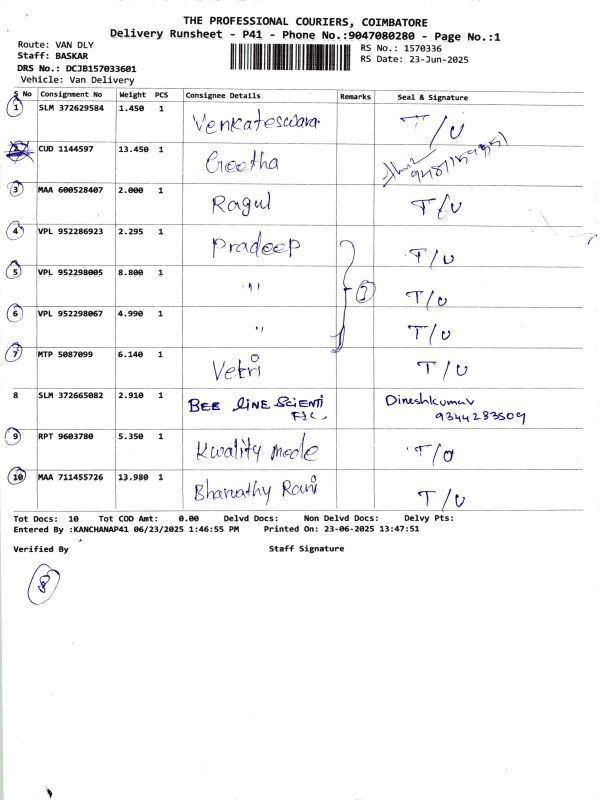 THE PROFESSIONAL COURIERS, COIMBATORE
Delivery Runsheet - P41 - Phone No.:9047080280 - Page No.:1
Route: VAN DLY
Staff: BASKAR
DRS No.: DCJB157033601
Vehicle: Van Delivery
RS No.: 1570336
RS Date: 23-Jun-2025
S No Consignment No Weight PCS Consignee Details Remarks Seal & Signature
1 SLM 372629584 1.450 1 Venkateswara T/U
2 CUD 1144597 13.450 1 Geetha
3 MAA 600528407 2.000 1 Ragul T/U
4 VPL 952286923 2.295 1 Pradeep T/U
5 VPL 952298005 8.800 1 " T/U
6 VPL 952298067 4.990 1 " T/U
7 MTP 5087099 6.140 1 Vetri T/U
8 SLM 372665082 2.910 1 BEE LINE SCIENTI Dineshkumar
9344283509
9 RPT 9603780 5.350 1 Kwality mode T/U
10 MAA 711455726 13.980 1 Bharathy Rani T/U
Tot Docs: 10 Tot COD Amt: 0.00 Delvd Docs: Non Delvd Docs: Delvy Pts:
Entered By :KANCHANAP41 06/23/2025 1:46:55 PM Printed On: 23-06-2025 13:47:51
Verified By Staff Signature
8